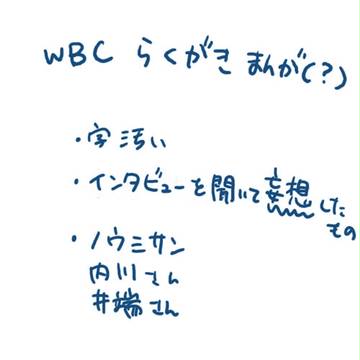 WBC らくがきまんが(?)
・字汚い
・インタビューを聞いて妄想した
もの
・ノウミサン
内川さん
井端さん